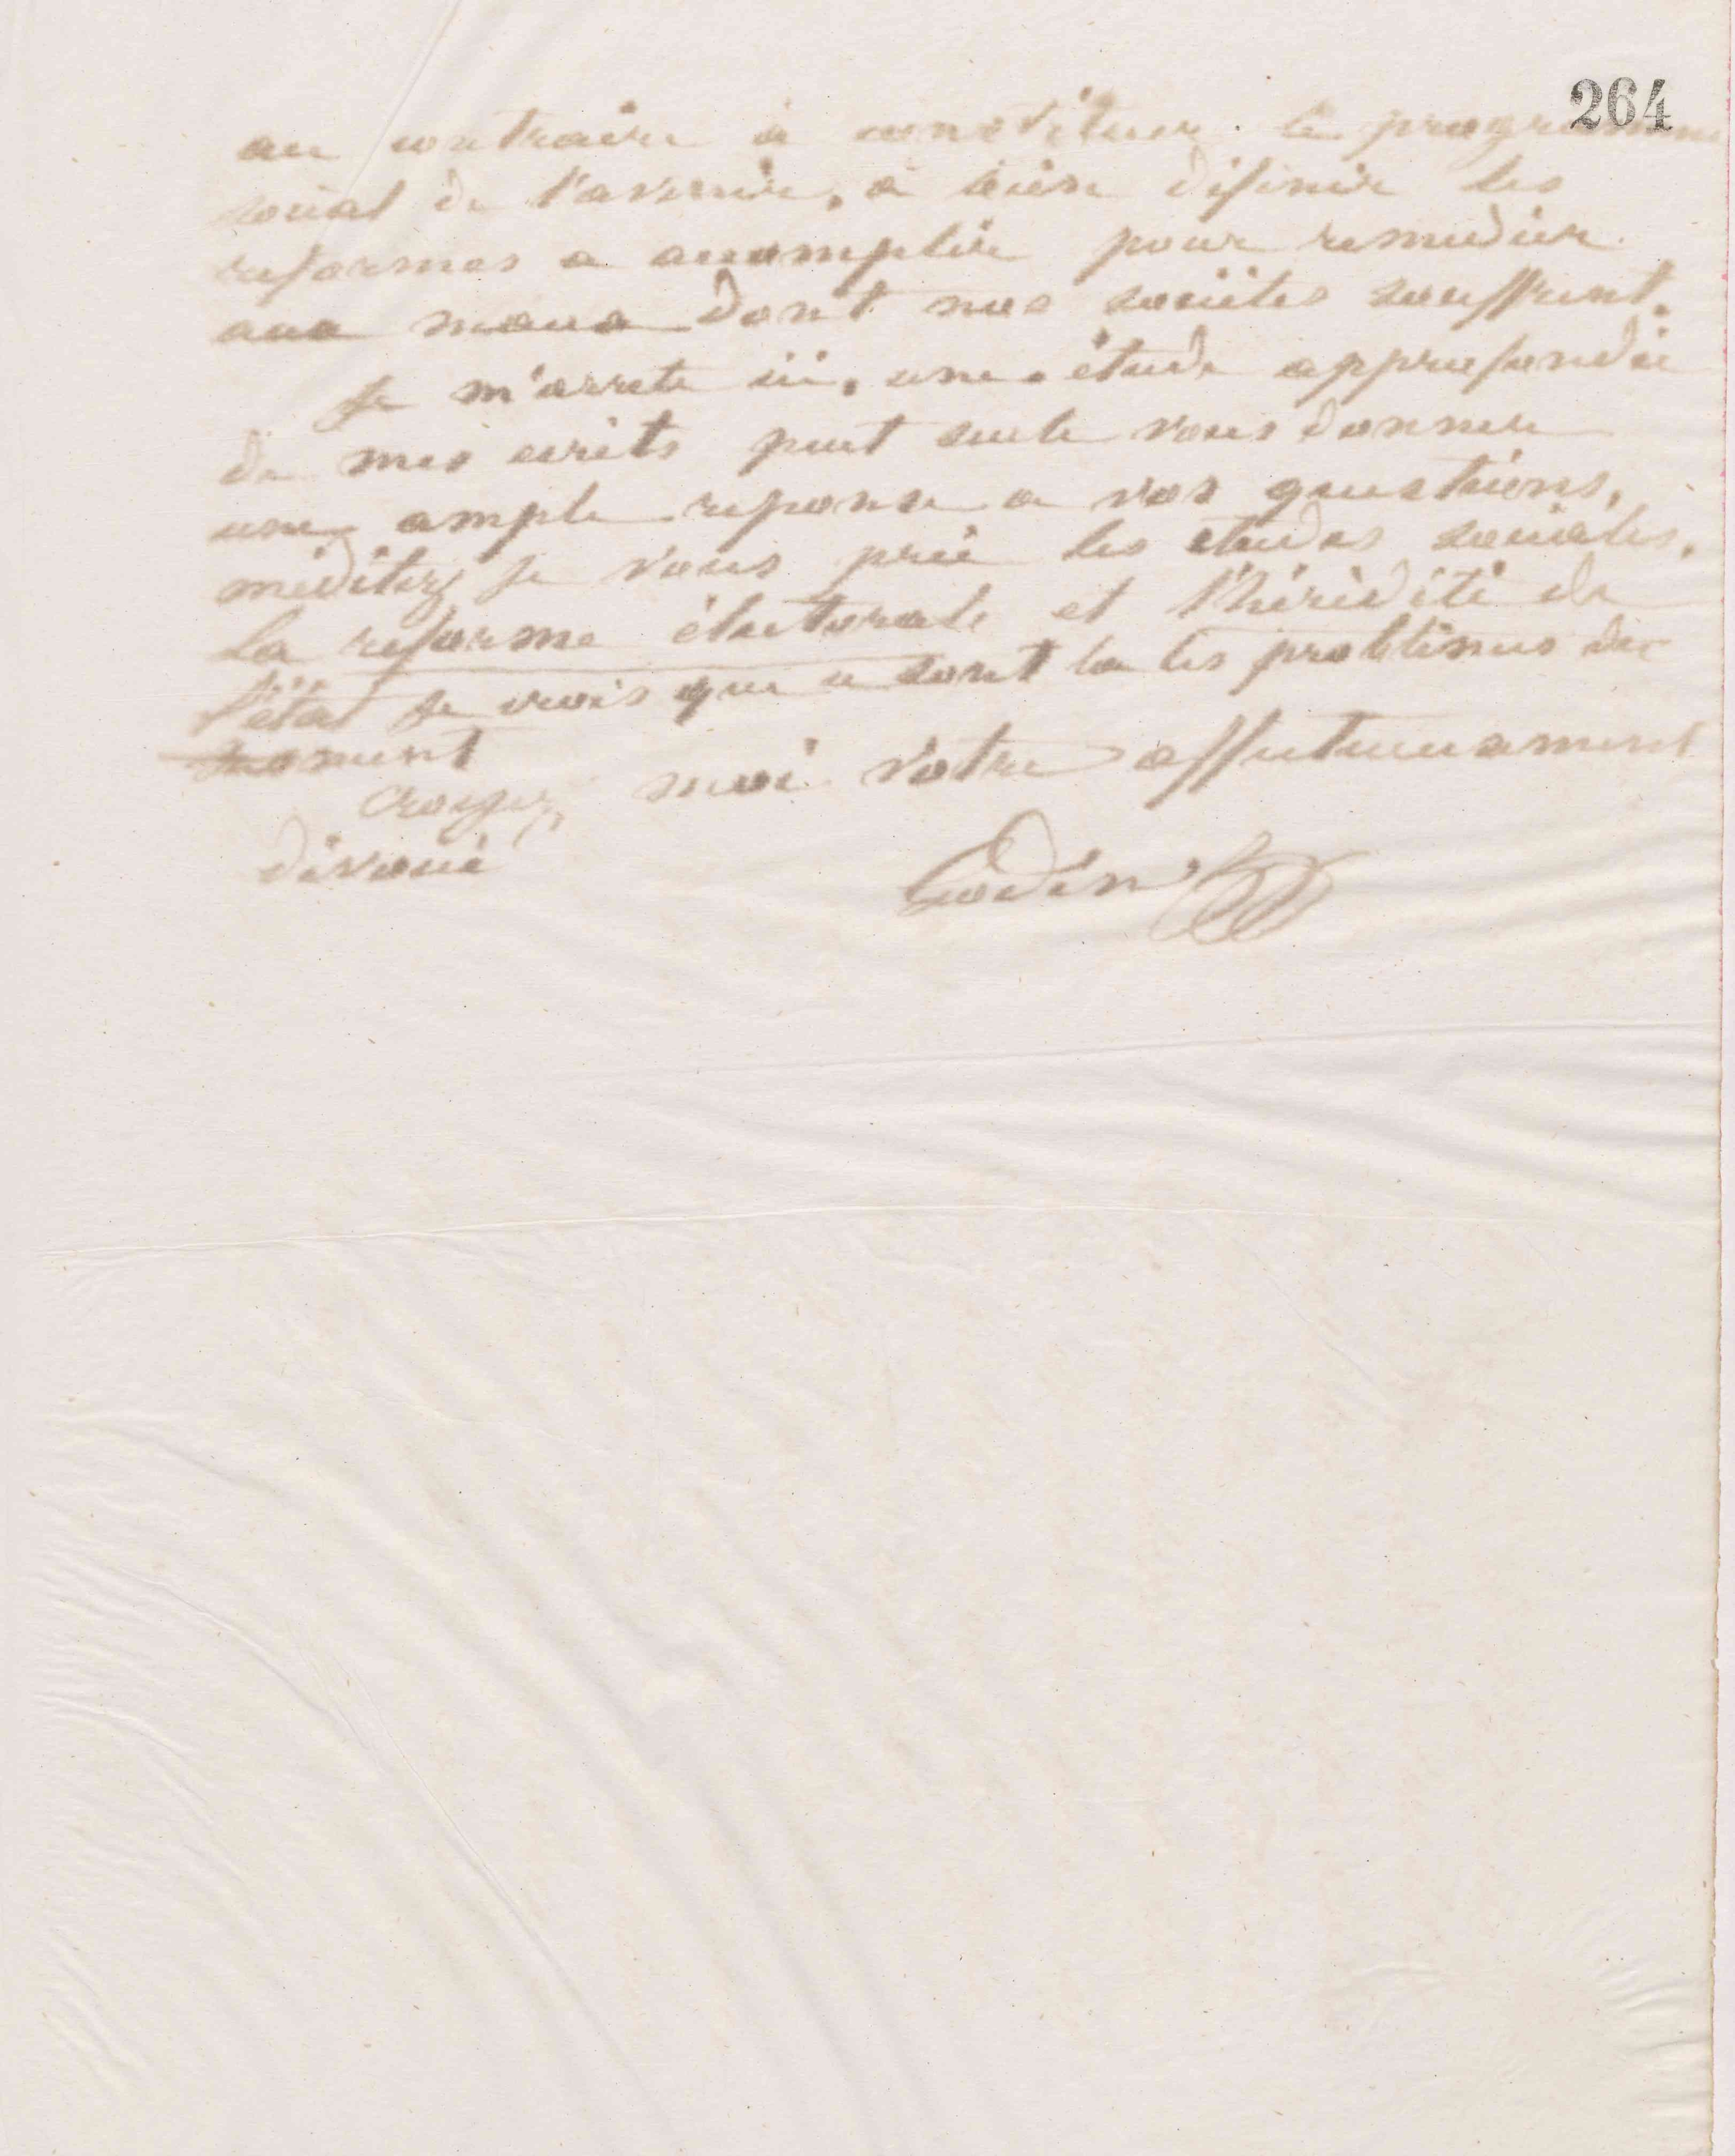 264
au contraire à constituer le programme
social de l'avenir, à bien définir les
reformes a accomplir pour remedier
aux maux dont nos sociétés souffrent.
Je m'arrete ici, une étude approfondie
de mes ecrits peut seule vous donner
une ample reponse a vos questions,
méditez je vous prie les etudes sociales,
la reforme électorale et l'hérédité de
l'état je crois que ce sont la les problèmes du
moment
Croyez moi votre affectueusement
dévoué
Godin